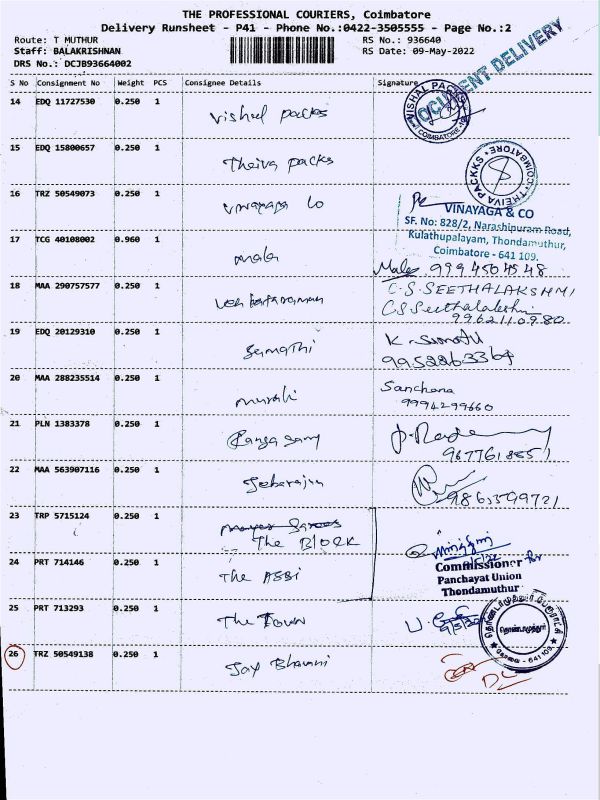 THE PROFESSIONAL COURIERS, Coimbatore
Delivery Runsheet - P41 - Phone No.:0422-3505555 - Page No.:2
Route: T MUTHUR RS No.: 936640
Staff: BALAKRISHNAN RS Date: 09-May-2022
DRS No.: DCJB93664002
DOCUMENT DELIVERY
S No Consignment No Weight PCS Consignee Details Signature
14 EDQ 11727530 0.250 1 Vishul packs
VISHAL PACKS
COIMBATORE
15 EDQ 15800657 0.250 1 Theiva packs
THEIVA PACKKS COIMBATORE
16 TRZ 50549073 0.250 1 Vinayaga Co
VINAYAGA & CO
SF. No: 828/2, Narashipuram Road,
Kulathupalayam, Thondamuthur,
Coimbatore - 641 109.
17 TCG 40108002 0.960 1 mala
Mala 9994504548
18 MAA 290757577 0.250 1
C.S.SEETHALAKSHMI
C S Seethalakshmi
9962110980
19 EDQ 20129310 0.250 1 Sumathi
K. Sumathi
9952263364
20 MAA 288235514 0.250 1 murali
Sanchana
9994299660
21 PLN 1383378 0.250 1 Rangasamy
22 MAA 563907116 0.250 1 Jebarajan
9863599721
23 TRP 5715124 0.250 1
The Block
24 PRT 714146 0.250 1 The ABBI
Commissioner for
Panchayat Union
Thondamuthur
25 PRT 713293 0.250 1 The Town
தொண்டாமுத்தூர் பேரூராட்சி
தொண்டாமுத்தூர்
கோவை - 641 109.
26 TRZ 50549138 0.250 1 Jay Bhavani
DL